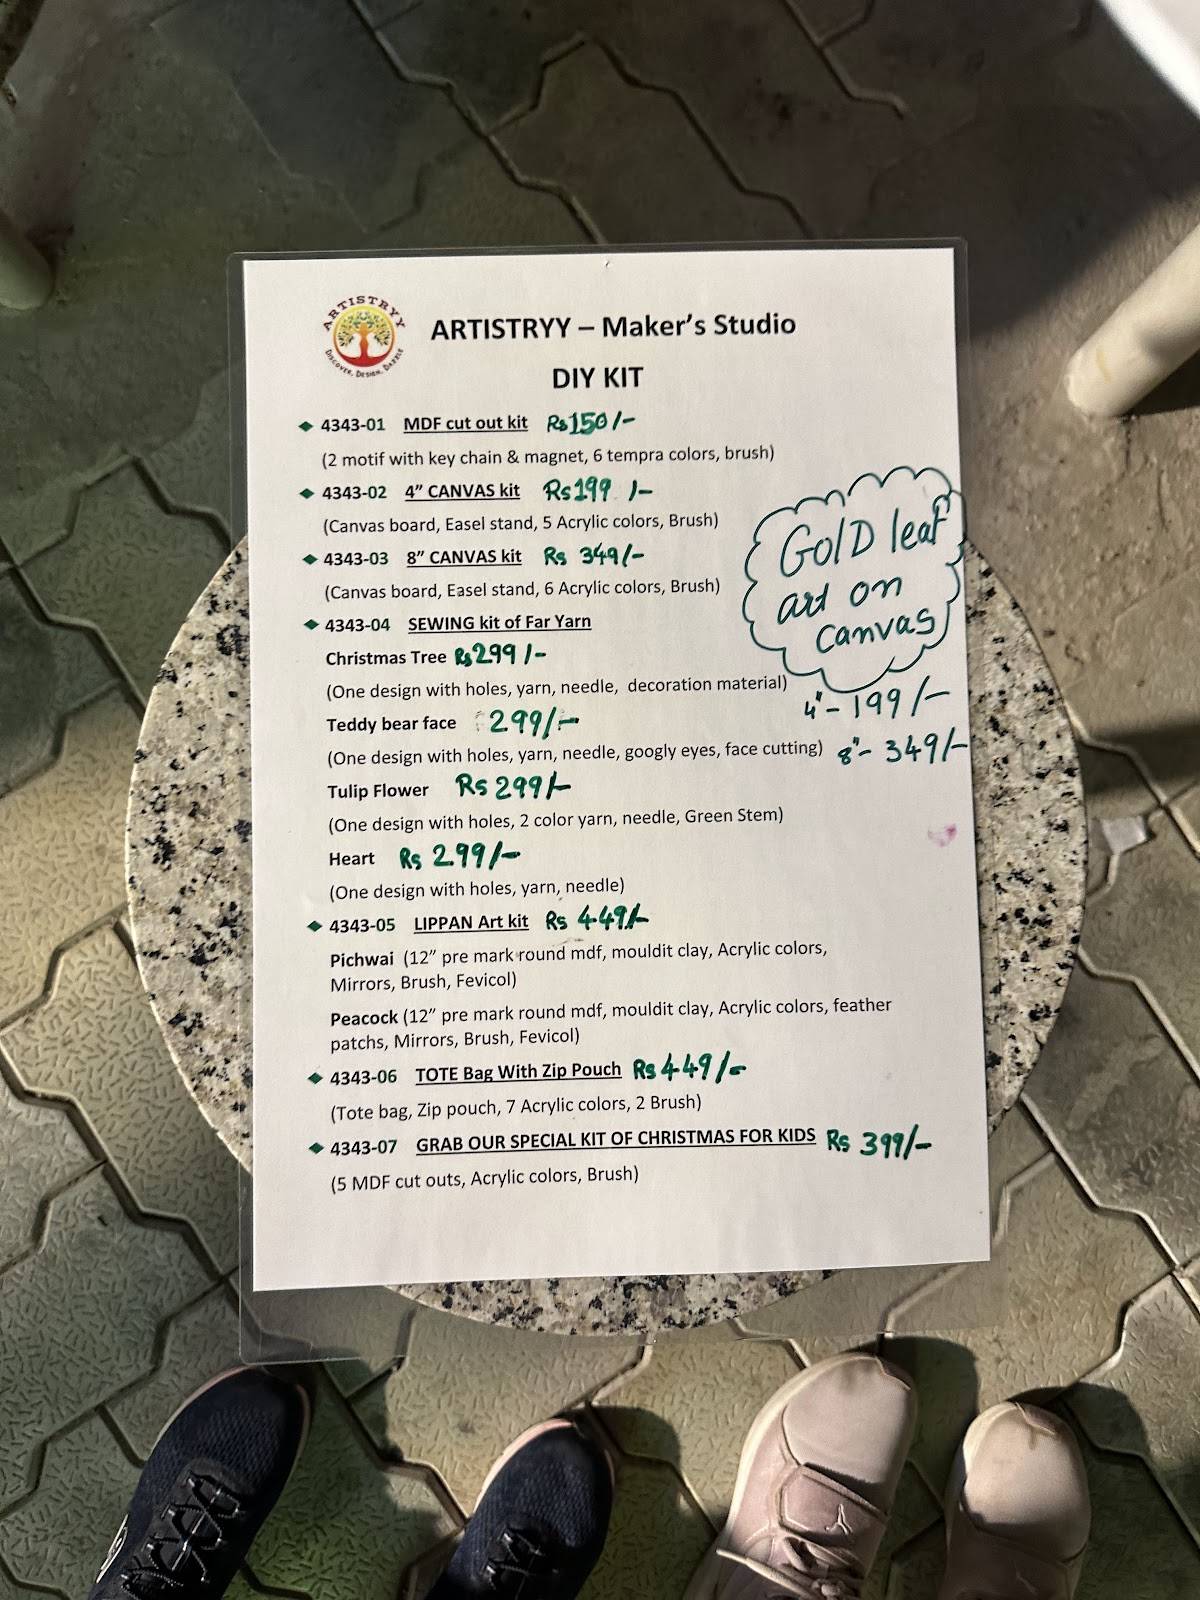 ARTISTRYY
DISCOVER, DESIGN, DAZZLE
ARTISTRYY – Maker's Studio
DIY KIT
4343-01 MDF cut out kit Rs150/-
(2 motif with key chain & magnet, 6 tempra colors, brush)
4343-02 4” CANVAS kit Rs199 /-
(Canvas board, Easel stand, 5 Acrylic colors, Brush)
4343-03 8” CANVAS kit Rs 349/-
(Canvas board, Easel stand, 6 Acrylic colors, Brush)
GolD leaf
art on
canvas
4"- 199/-
8"- 349/-
4343-04 SEWING kit of Far Yarn
Christmas Tree Rs299/-
(One design with holes, yarn, needle, decoration material)
Teddy bear face 299/-
(One design with holes, yarn, needle, googly eyes, face cutting)
Tulip Flower Rs 299/-
(One design with holes, 2 color yarn, needle, Green Stem)
Heart Rs 299/-
(One design with holes, yarn, needle)
4343-05 LIPPAN Art kit Rs 449/-
Pichwai (12” pre mark round mdf, mouldit clay, Acrylic colors,
Mirrors, Brush, Fevicol)
Peacock (12” pre mark round mdf, mouldit clay, Acrylic colors, feather
patchs, Mirrors, Brush, Fevicol)
4343-06 TOTE Bag With Zip Pouch Rs 449/-
(Tote bag, Zip pouch, 7 Acrylic colors, 2 Brush)
4343-07 GRAB OUR SPECIAL KIT OF CHRISTMAS FOR KIDS Rs 399/-
(5 MDF cut outs, Acrylic colors, Brush)